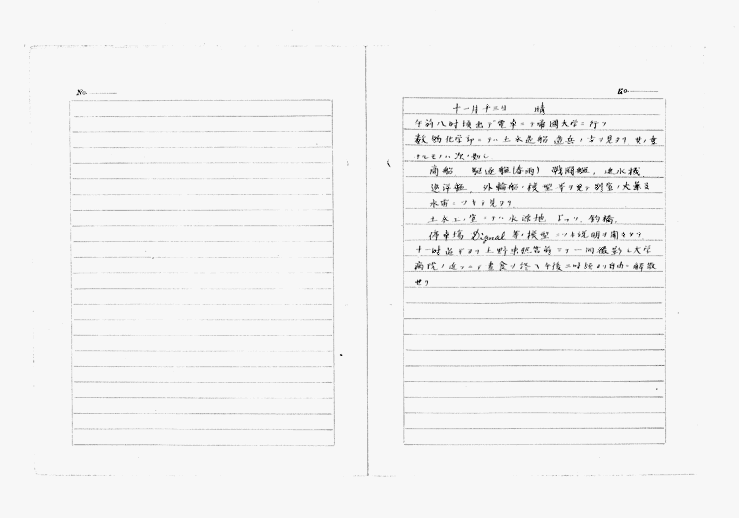 No.
No.
十一月十三日 晴
午前八時頃出デ電車ニテ帝国大学ニ行ク
数物化学部ニテハ土木造船造兵ノ 見タリ 其ノ重
ナルモノハ次ノ如シ
商船 駆逐艇(春雨) 戦闘艦、速水機
浮艇 外輪船ノ模型等ヲ見テ別室ノ火薬及
水雷ニツキテ見タリ
土木工 室ニテハ水源地 釣橋
停車場 Signal 等ノ模型ニツキ説明ヲ聞キタリ
十一時 上野 前ニテ一同撮影シ大学
病院ノ近クニテ昼食ヲ終ヘ午後二時頃ヨリ自由ニ解散
セリ